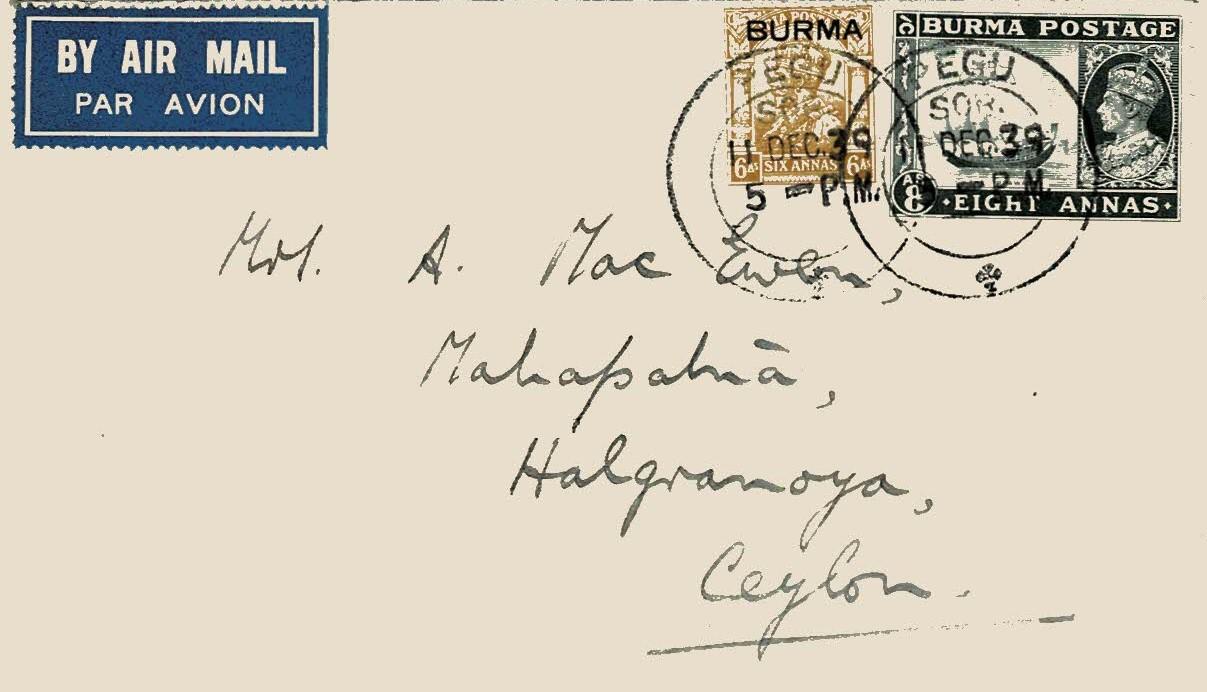 BY AIR MAIL
PAR AVION
BURMA
6As SIX ANNAS 6As
BURMA POSTAGE
AS 8
EIGHT ANNAS
PEGU
SOR.
11 DEC. 39
5 – P.M.
PEGU
SOR.
DEC. 39
P.M.
Mrs. A. Mac Ewen,
Mahapatnā,
Halgranoya,
Ceylon.